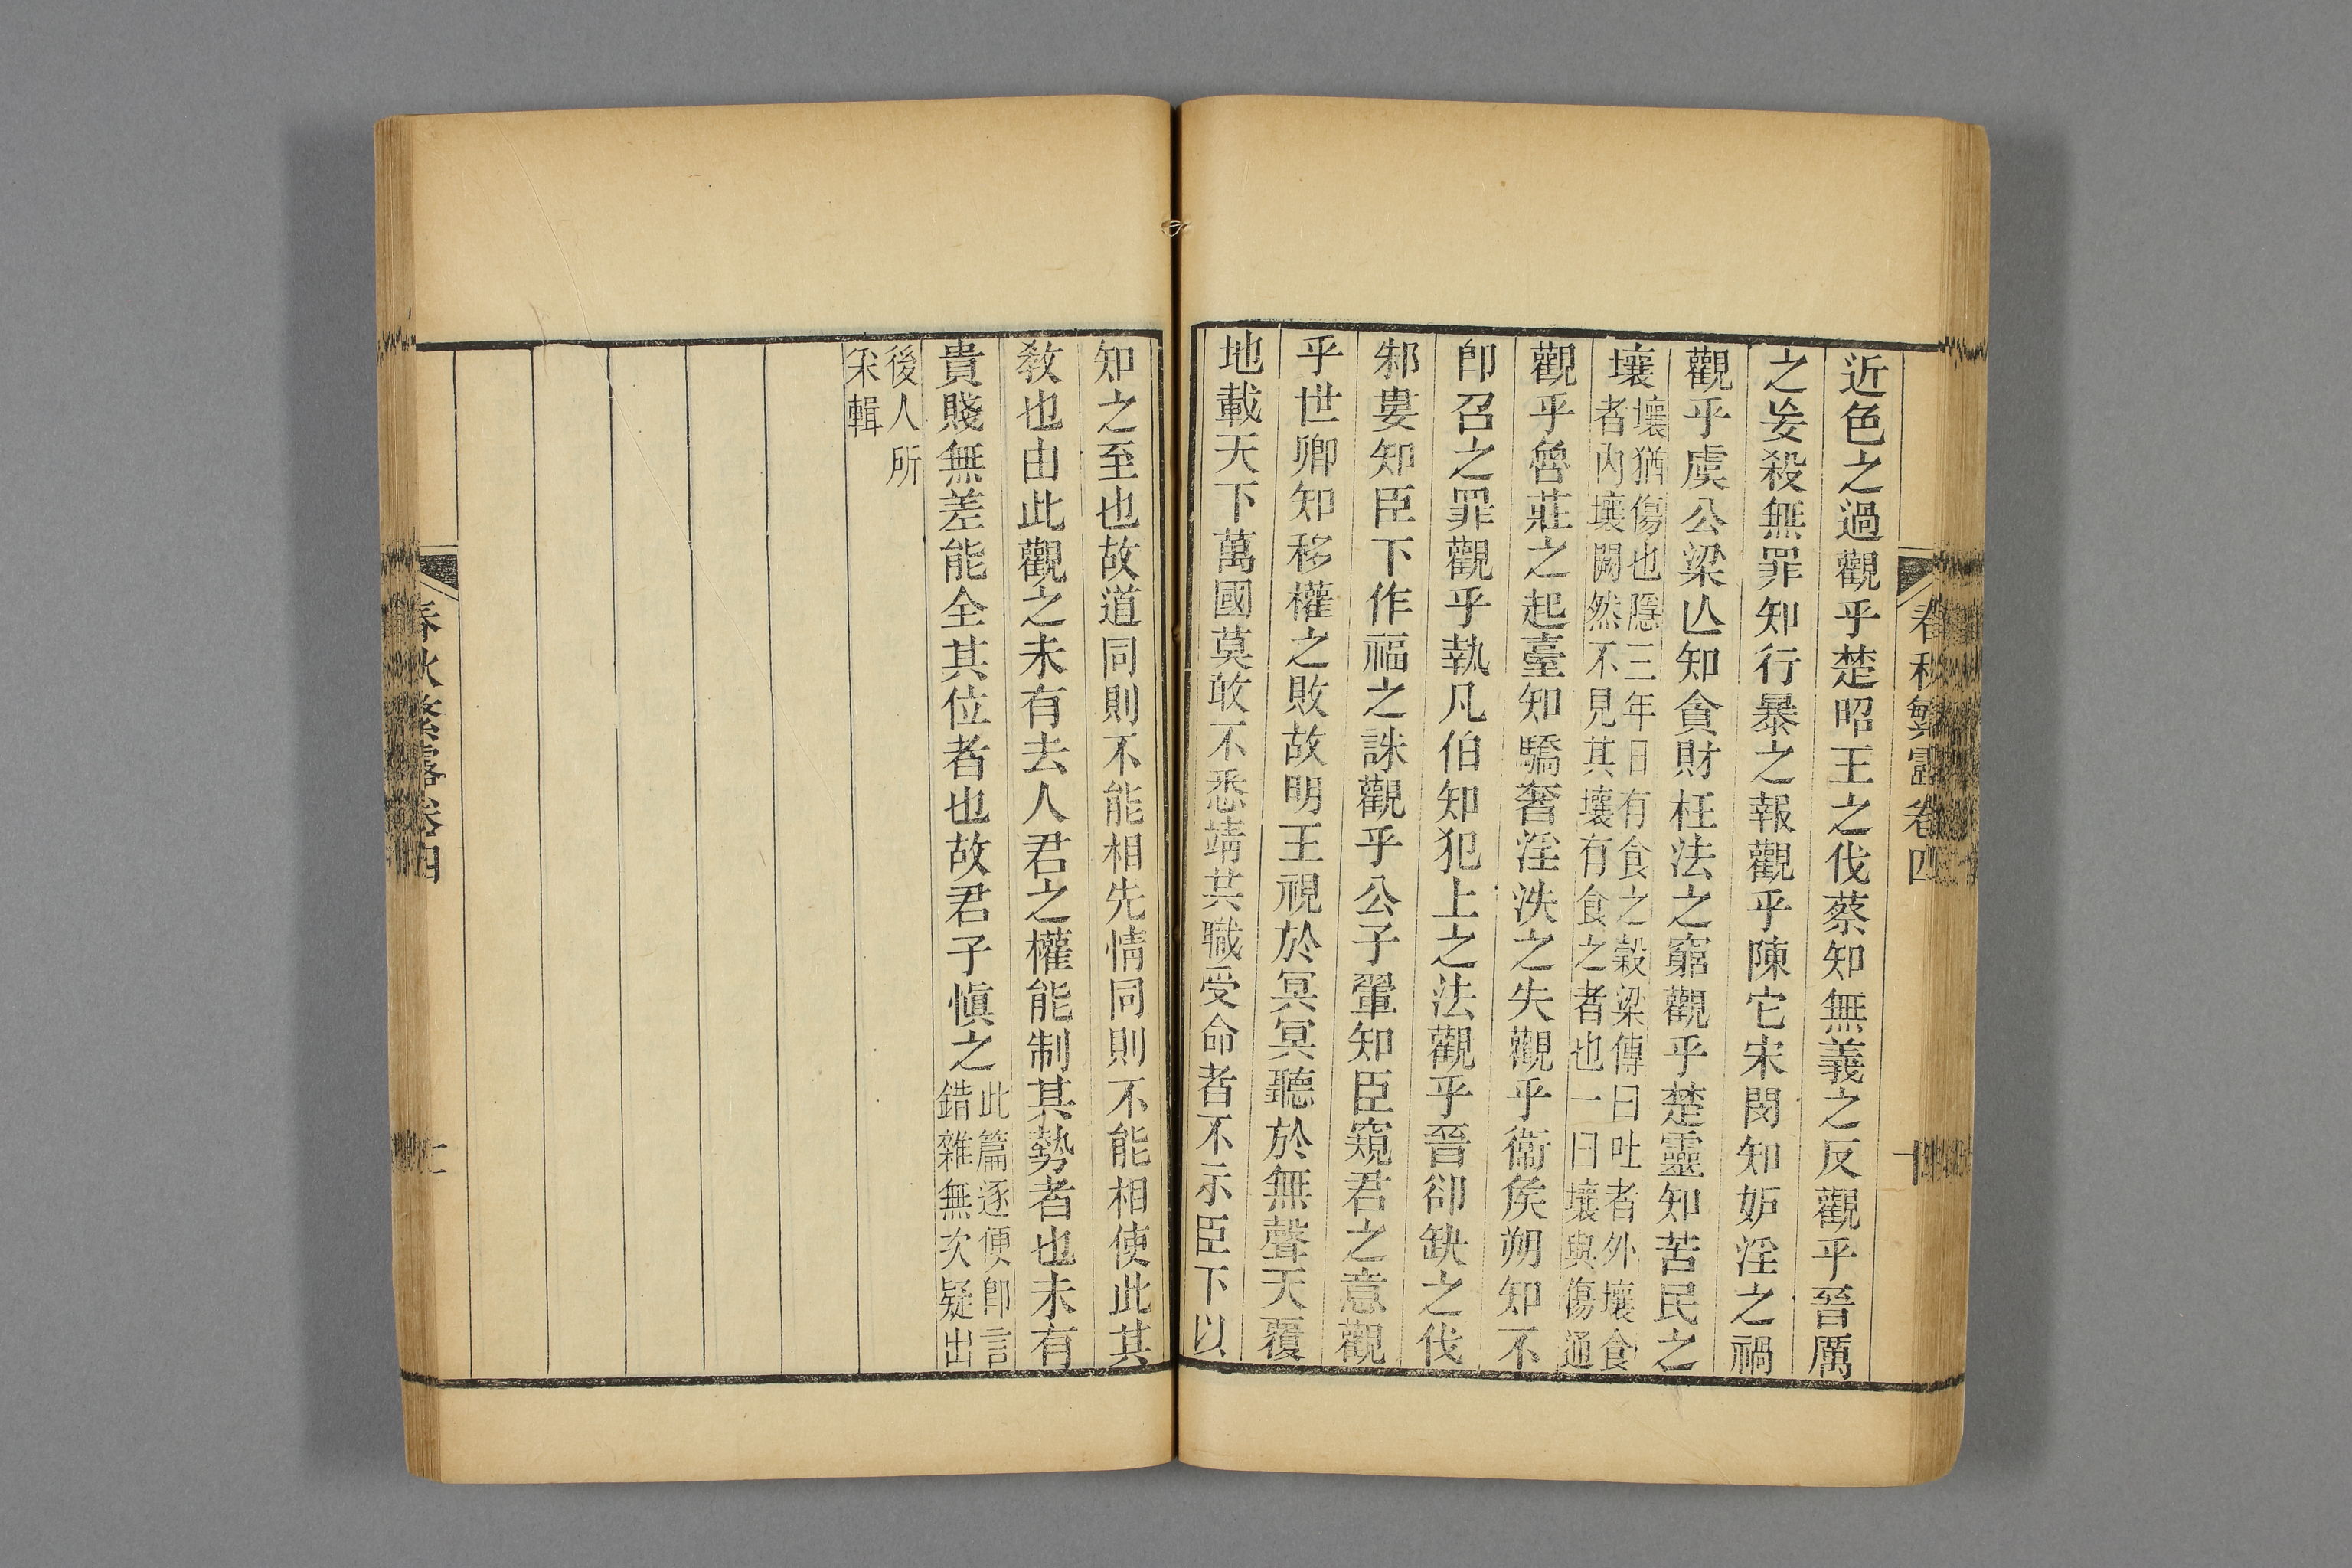 近色之過觀乎楚昭王之伐蔡知無義之反觀乎晉厲
之妄殺無罪知行暴之報觀乎陳它宋閔知妒淫之禍
觀乎虞公梁亾知貪財枉法之窮觀乎楚靈知苦民之
壤
壤猶傷也隱三年日有食之穀梁傳曰吐者外壤食
者内壤闕然不見其壤有食之者也一曰壤與傷通
觀乎魯莊之起臺知驕奢淫泆之失觀乎衞矦朔知不
卽召之罪觀乎執凡伯知犯上之法觀乎晉郤缺之伐
邾婁知臣下作福之誅觀乎公子翬知臣窺君之意觀
乎世卿知移權之敗故明王視於冥冥聽於無聲天覆
地載天下萬國莫敢不悉靖共職受命者不示臣下以
春秋繁露卷四
十
知之至也故道同則不能相先情同則不能相使此其
教也由此觀之未有去人君之權能制其勢者也未有
貴賤無差能全其位者也故君子愼之
此篇逐便卽言
錯雜無次疑出
後人所
采輯
春秋繁露卷四